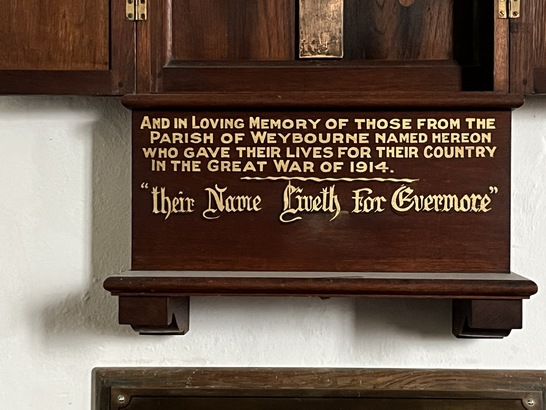 And in Loving Memory of those from the
Parish of Weybourne named hereon
who gave their lives for their country
in the Great War of 1914.
"their Name Liveth For Evermore"